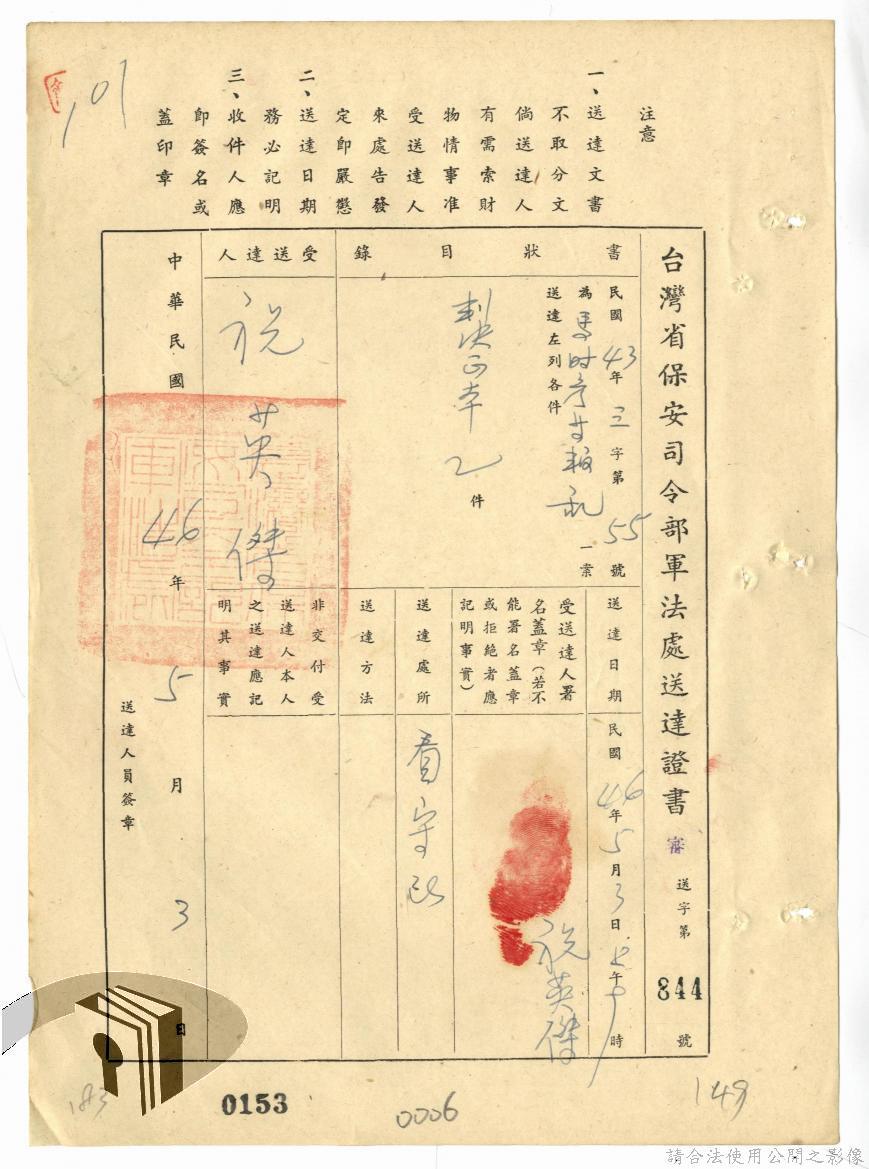 注意
一、送達文書
不取分文
倘送達人
有需索財
物情事准
受送達人
來處告發
定即嚴懲
二、送達日期
務必記明
三、收件人應
即簽名或
蓋印章
101
台灣省保安司令部軍法處送達證書 審 送字第 844 號
書狀目錄
民國43年三字第55號
為馬時彥等叛亂一案
送達左列各件
判決正本乙件
受送達人
祝英傑
送達日期
民國46年5月3日 午 時
受送達人署
名蓋章(若不
能署名蓋章
或拒絕者應
記明事實)
祝英傑
送達處所
看守所
送達方法
非交付受
送達人本人
之送達應記
明其事實
中華民國46年5月3日
送達人員簽章
183
0153
0006
149
請合法使用公開之影像